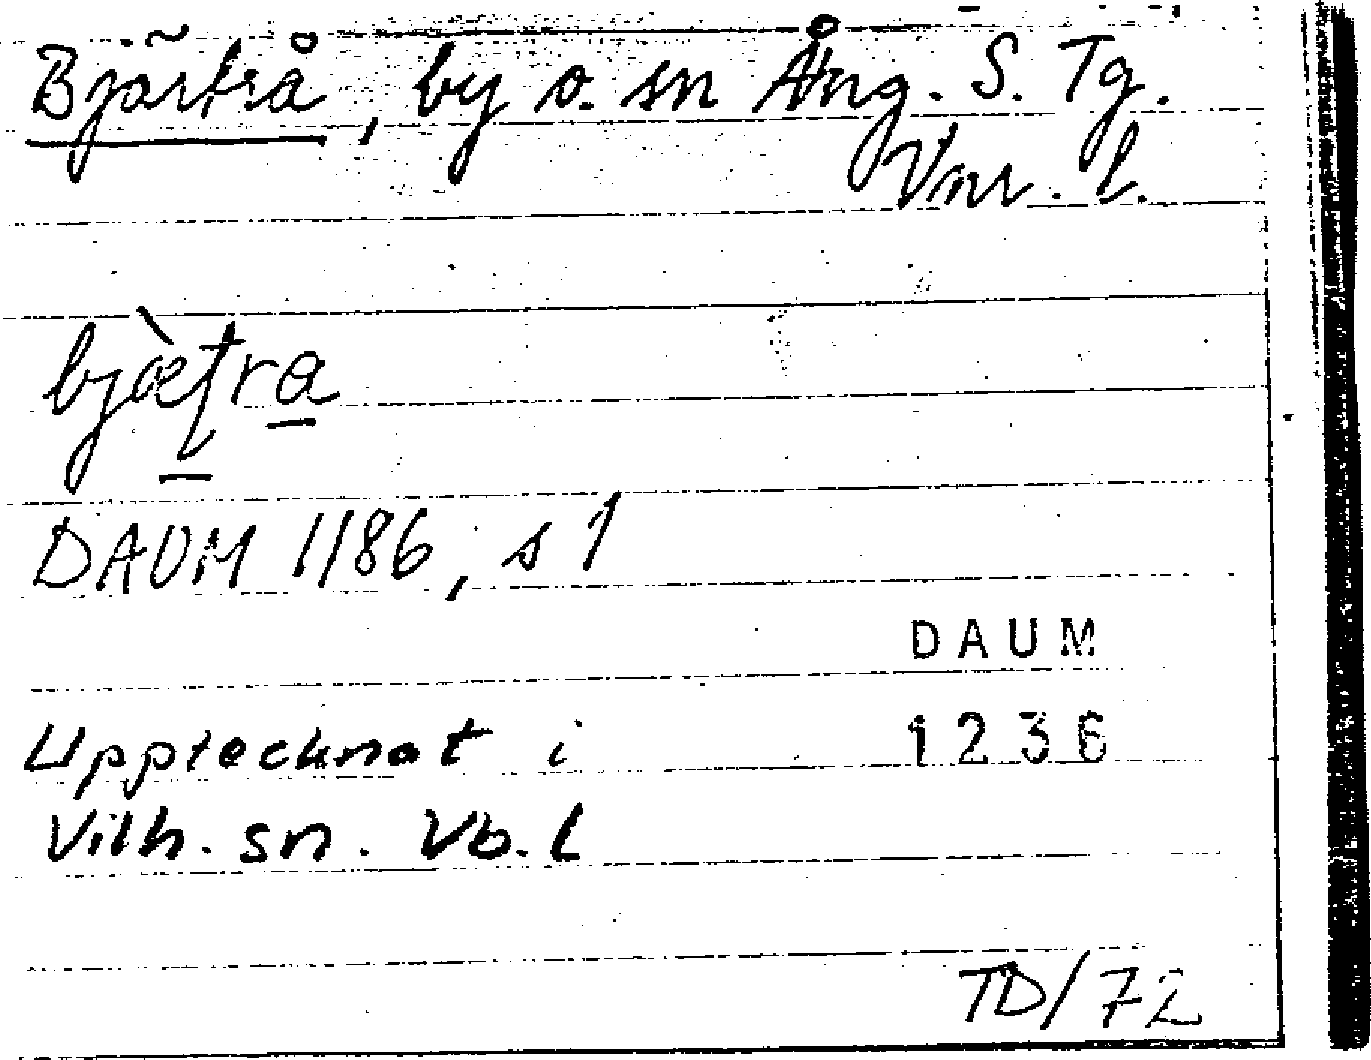 Bjärtrå, by o. sn Ång. S. Tg.
Vnr. l.
bjæ̀ʈra
DAUM 1186, s 1
DAUM
Upptecknat i 1236
Vilh. sn. Vb. l
TD/72